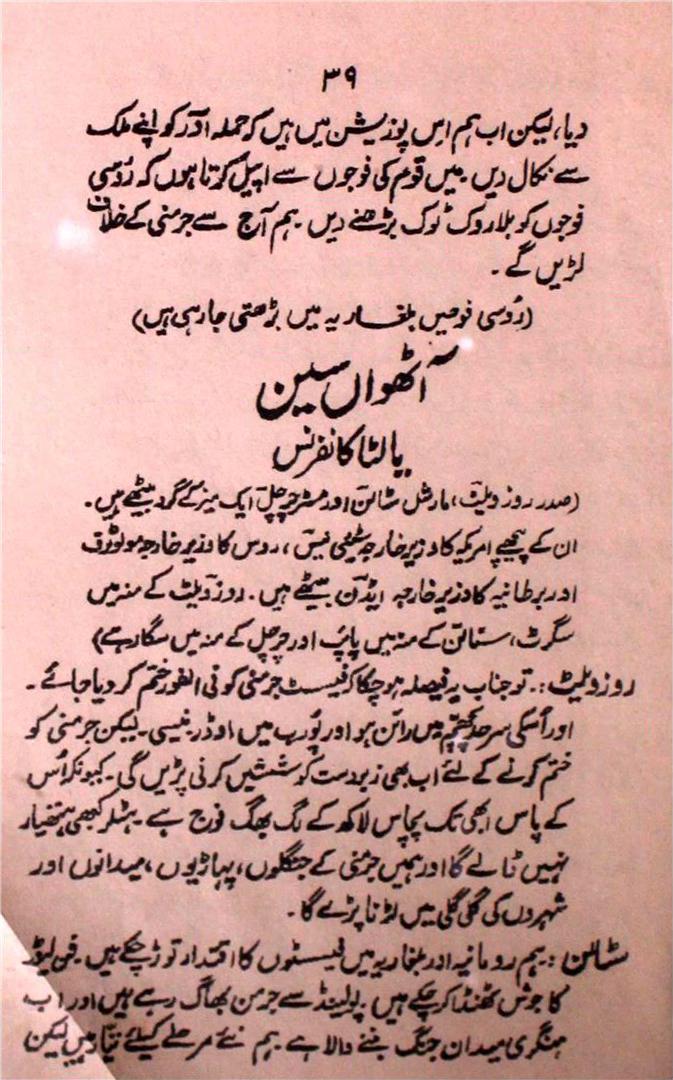 ۳۹
دیا، لیکن اب ہم اس پوزیشن میں ہیں کہ حملہ آور کو اپنے ملک
سے نکال دیں۔ میں قوم کی فوجوں سے اپیل کرتا ہوں کہ رُوسی
فوجوں کو بلا روک ٹوک بڑھنے دیں۔ ہم آج سے جرمنی کے خلاف
لڑیں گے۔
(رُوسی فوجیں بلغاریہ میں بڑھتی جا رہی ہیں)
آٹھواں سین
یالٹا کانفرنس
(صدر روز ویلٹ، مارشل سٹالن اور مسٹر چرچل ایک میز کے گرد بیٹھے ہیں۔
ان کے پیچھے امریکہ کا وزیر خارجہ سٹیٹی نیس، روس کا وزیر خارجہ مولوٹوف
اور برطانیہ کا وزیر خارجہ ایڈن بیٹھے ہیں۔ روز ویلٹ کے منہ میں
سگرٹ، سٹالن کے منہ میں پائپ اور چرچل کے منہ میں سگار ہے)
روز ویلٹ:۔ تو جناب یہ فیصلہ ہو چکا کہ فیسٹ جرمنی کو فی الفور ختم کر دیا جائے۔
اور اُسکی سرحد پچھم میں رائن ہو اور پُورب میں اوڈر نیسی۔ لیکن جرمنی کو
ختم کرنے کے لئے اب بھی زبردست کوششیں کرنی پڑیں گی۔ کیونکہ اُس
کے پاس ابھی تک پچاس لاکھ کے لگ بھگ فوج ہے۔ ہٹلر کبھی ہتھیار
نہیں ڈالے گا اور ہمیں جرمنی کے جنگلوں، پہاڑیوں، میدانوں اور
شہروں کی گلی گلی میں لڑنا پڑے گا۔
سٹالن:۔ ہم رومانیہ اور بلغاریہ میں فیسٹوں کا اقتدار توڑ چکے ہیں۔ فن لینڈ
کا جوش ٹھنڈا کر چکے ہیں۔ پولینڈ سے جرمن بھاگ رہے ہیں اور اب
ہنگری میدان جنگ بننے والا ہے۔ ہم نئے مرحلے کیلئے تیار ہیں لیکن